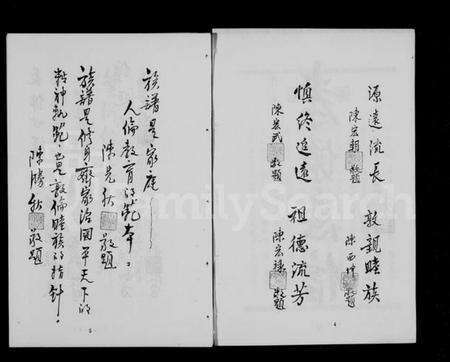 源遠流長
陳宏朝 敬題
敦親睦族
陳西 敬題
慎終追遠
陳宏武 敬題
祖德流芳
陳宏 敬題
族譜是家庭
人倫教育的範本。
陳 秋 敬題
族譜是修身齊家治國平天下的
精神軌跑，也是敦倫睦族的指針。
陳勝 敬題
FamilySearch